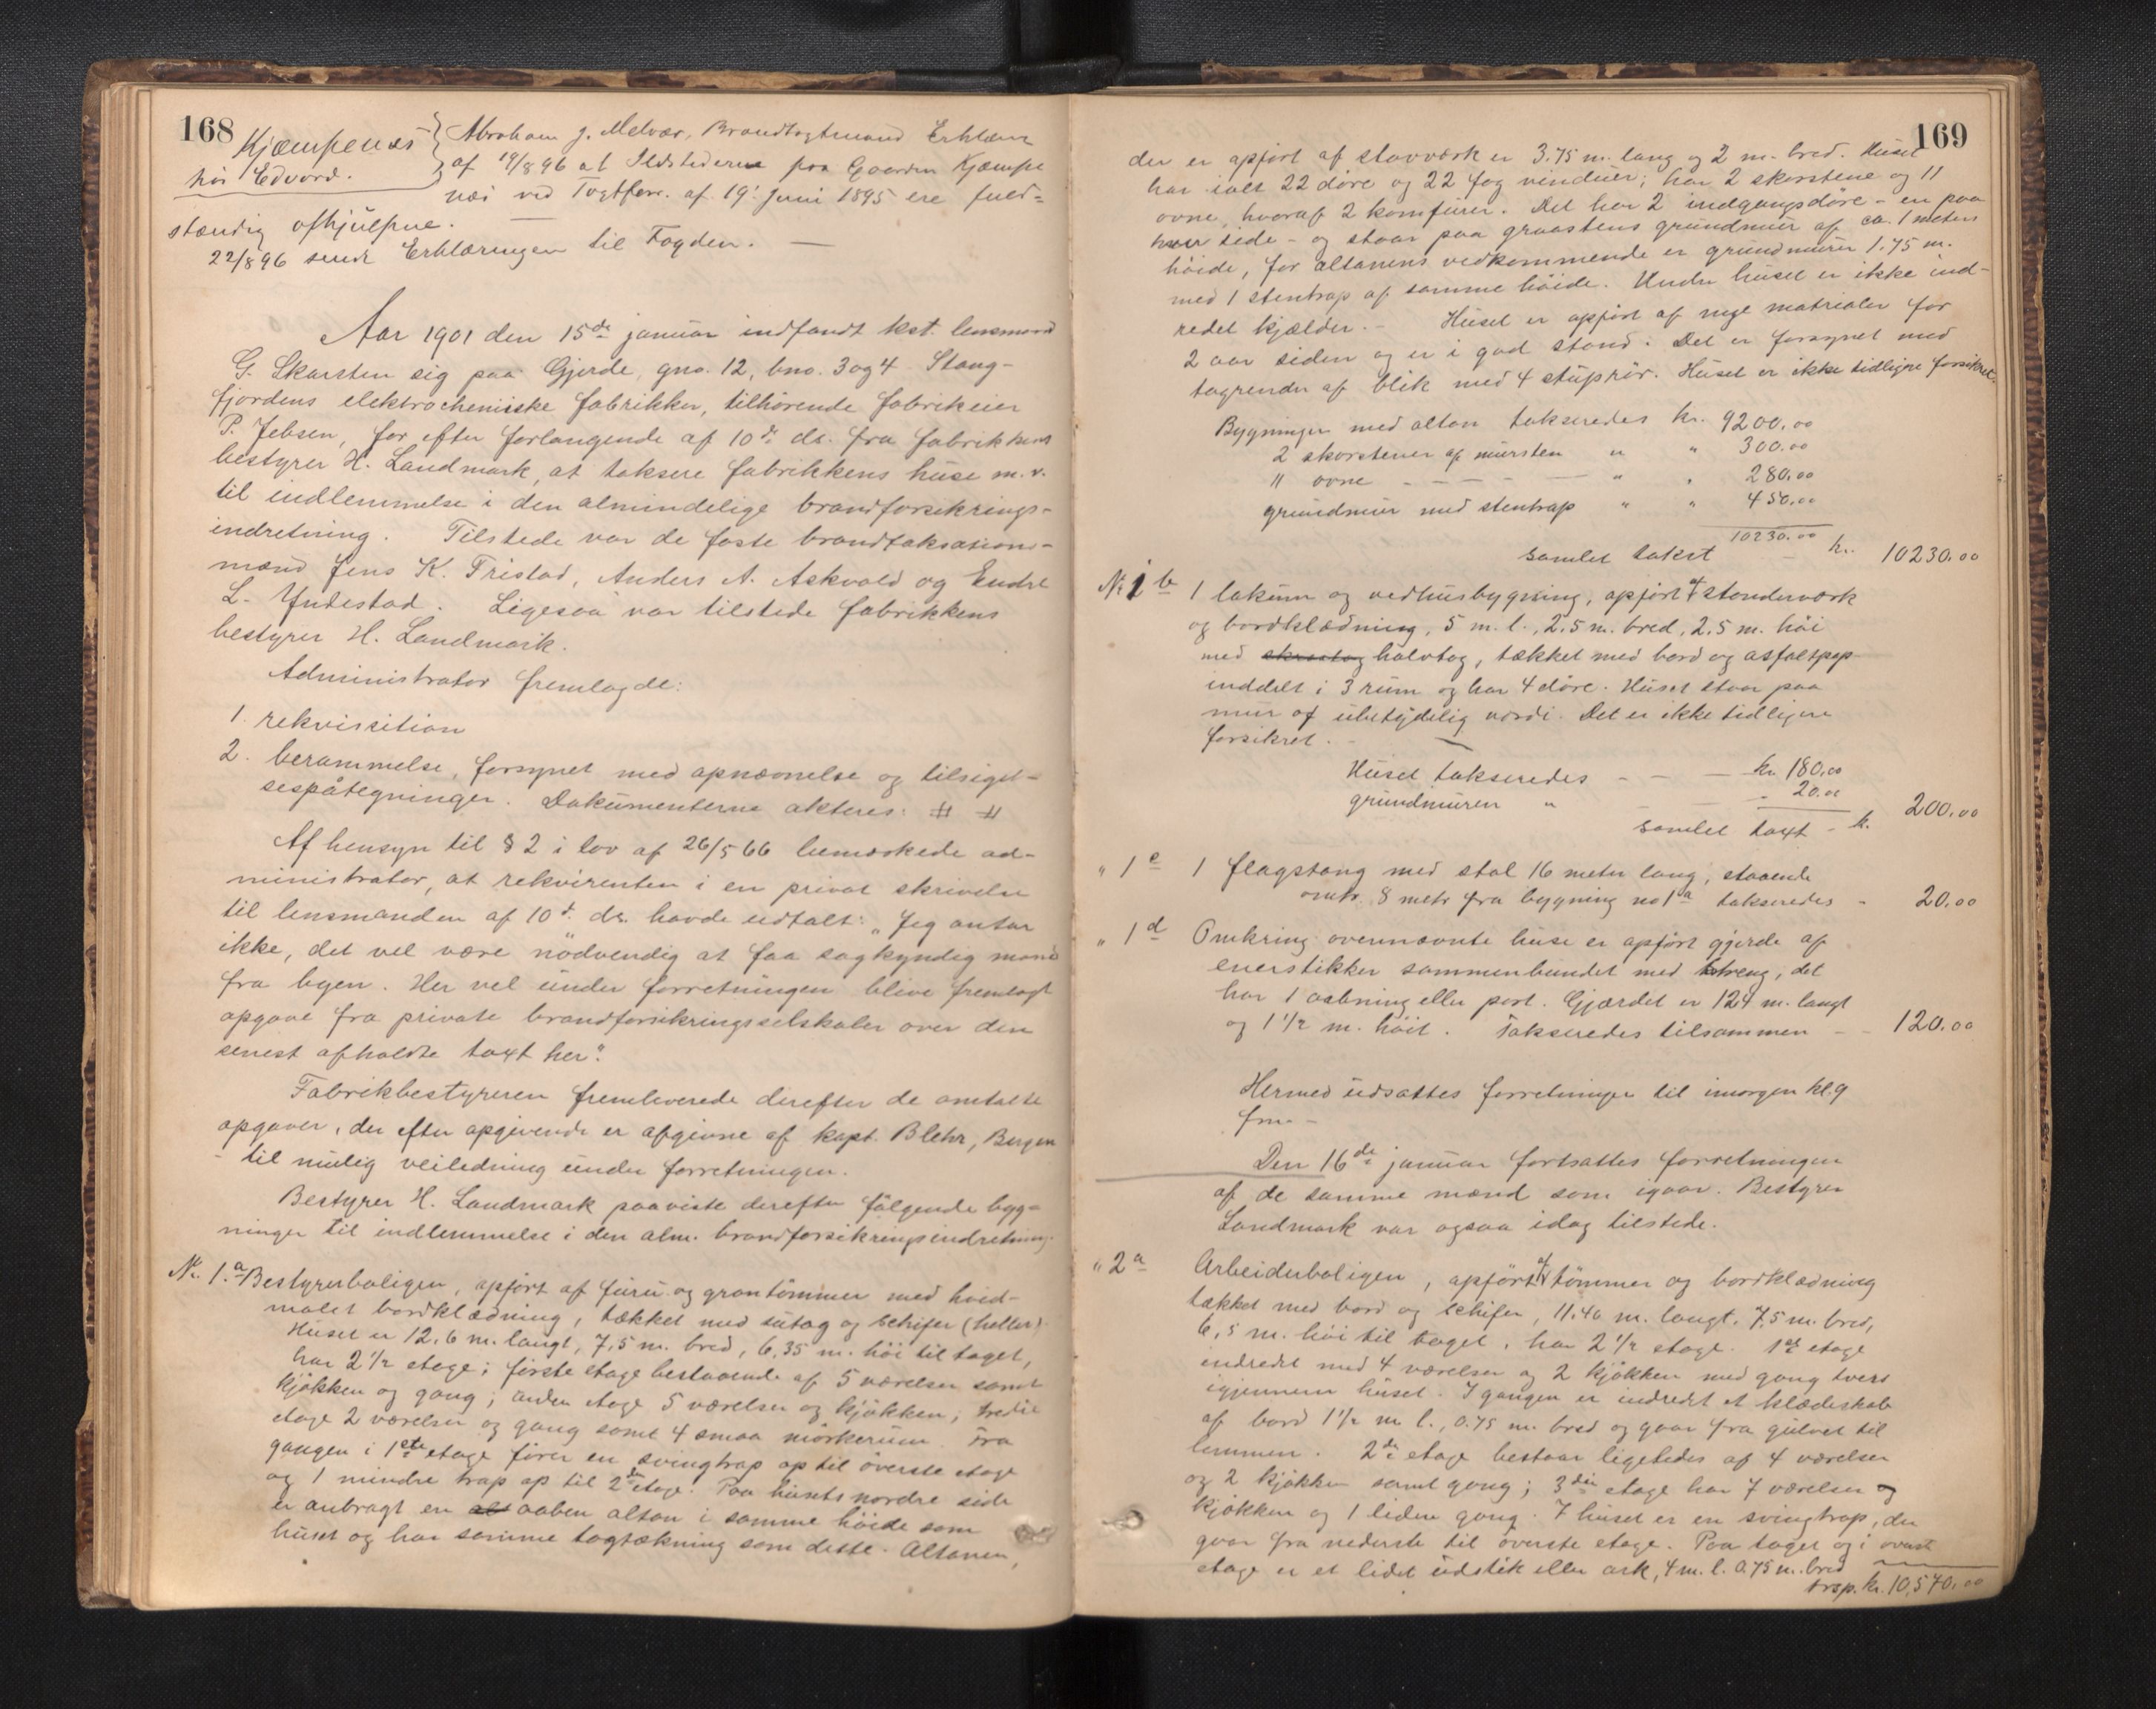 168
Kjæmpenæs } Abraham J. Melvær, Brandtagtmand Erklærer
hos Edvard. af 19/8 96 at Ildstederne paa Gaarden Kjæmpe
næs ved Togtforr. af 19' Juni 1895 ere fuld=
stændig afhjulpne. —
22/8 96 sendt Erklæringen til Fogden. —
Aar 1901 den 15de januar indfandt kst. lensmand
G. Skarsten sig paa Gjerde, gno. 12, bno. 3 og 4 Stang-
fjordens elektrochemiske fabrikker, tilhörende fabrikeier
P. Jebsen, for efter forlangende af 10de ds. fra fabrikkens
bestyrer H. Landmark, at taksere fabrikkens huse m. v.
til indlemmelse i den almindelige brandforsikrings-
indretning. Tilstede var de faste brandtaksations-
mænd Jens K. Tristad, Anders A. Askvold og Endre
L. Yndestad. Ligesaa var tilstede fabrikkens
bestyrer H. Landmark.
Administrator fremlagde:
1. rekvisition
2. berammelse, forsynet med opnævnelse og tilsigel-
sespåtegninger. Dokumenterne akteres: # #
Af hensyn til § 2 i lov af 26/5 66 bemærkede ad-
ministrator, at rekvirenten i en privat skrivelse
til lensmanden af 10d. ds. havde udtalt: „Jeg antar
ikke, det vel være nödvendig at faa sagkyndig mand
fra byen. Her vel under forretningen blive fremlagt
opgave fra private brandforsikringsselskaber over den
senest afholdte taxt her".
Fabrikbestyreren fremleverede derefter de omtalte
opgaver, der efter opgivende er afgivne af kapt. Blehr, Bergen
- til mulig veiledning under forretningen.
Bestyrer H. Landmark paaviste derefter fölgende byg-
ninger til indlemmelse i den alm. brandforsikringsindretning.
N. 1.a Bestyrerboligen, opfört af furu og grantömmer med hvid-
malet bordklædning, tækket med sutag og skifer (heller).
Huset er 12,6 m. langt, 7,5 m. bred, 6,35 m. höi til taget,
har 2 1/2 etage; förste etage bestaaende af 5 værelser samt
kjökken og gang; anden etage 5 værelser og kjökken; tredie
etage 2 værelser og gang samt 4 smaa mörkerum. Fra
gangen i 1ste etage förer en svingtrap op til överste etage
og 1 mindre trap op til 2den etage. Paa husets nordre side
er anbragt en alt aaben altan i samme höide som
huset og har samme tagtækning som dette. Altanen,
169
der er opfört af stavværk er 3.75 m. lang og 2 m. bred. Huset
har ialt 22 döre og 22 fag vinduer; har 2 skorstene og 11
ovne, hvoraf 2 komfurer. Det har 2 indgangsdöre - en paa
hver side - og staar paa graastens grundmur af ca. 1 meters
höide, for altanens vedkommende er grundmuren 1.75 m.
med 1 stentrap af samme höide. Under huset er ikke ind-
redet kjælder. - Huset er opfört af nye matrialer for
2 aar siden og er i god stand. Det er forsynet med
tagrender af blik med 4 stuprör. Huset er ikke tidligere forsikret.
Bygningen med altan takseredes kr. 9200.00
2 skorstener af mursten " " 300.00
11 ovne - - - - — " " 280.00
grundmur med stentrap " " 450.00
10230.00
samlet takst kr. 10230.00
N. 1 b 1 lokum og vedhusbygning, opfört af stenderværk
og bordklædning, 5 m. l., 2,5 m. bred, 2,5 m. höi
med halvtag, tækket med bord og asfaltpap
inddelt i 3 rum og har 4 döre. Huset staar paa
mur af ubetydelig værdi. Det er ikke tidligere
forsikret. -
Huset takseredes - - — kr. 180.00
grundmuren " - — - 20.00
samlet taxt - kr. 200.00
" 1 c 1 flagstang med stal 16 meter lang, staaende
omtr. 8 metr fra bygning no 1a takseredes - 20.00
" 1 d Omkring overnævnte huse er opfört gjerde af
enerstikker sammenbundet med streng, det
har 1 aabning eller port. Gjærdet er 124 m. langt
og 1 1/2 m. höit. Takseredes tilsammen - - 120.00
Hermed udsattes forretningen til imorgen kl. 9
fm. -
Den 16de januar fortsattes forretningen
af de samme mænd som igaar. Bestyrer
Landmark var ogsaa idag tilstede.
" 2 a Arbeiderboligen, opfört af tömmer og bordklædning
tækket med bord og skifer, 11.40 m. langt, 7,5 m. bred,
6,5 m. höi til taget, har 2 1/2 etage. 1ste etage
indredet med 4 værelser og 2 kjökken med gang tvers
igjennem huset. I gangen er indredet et klædeskab
af bord 1 1/2 m. l., 0.75 m. bred og gaar fra gulvet til
lemmen. 2den etage bestaar ligeledes af 4 værelser
og 2 kjökken samt gang; 3die etage har 7 værelser og
kjökken og 1 liden gang. I huset er en svingtrap, der
gaar fra nederste til överste etage. Paa taget og i överste
etage er et lidet udstik eller ark, 4 m. l. 0.75 m. bred
trsp. kr. 10,570.00